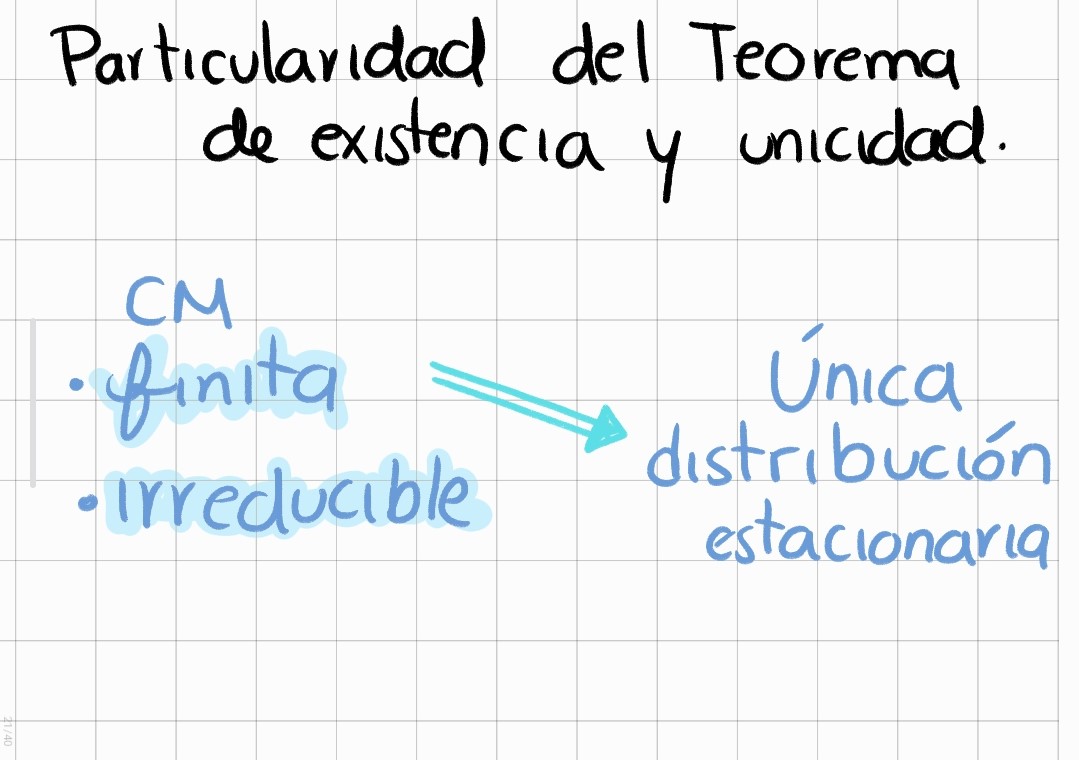 Particularidad del Teorema
de existencia y unicidad.
CM
• finita
• irreducible
Única
distribución
estacionaria
21/40